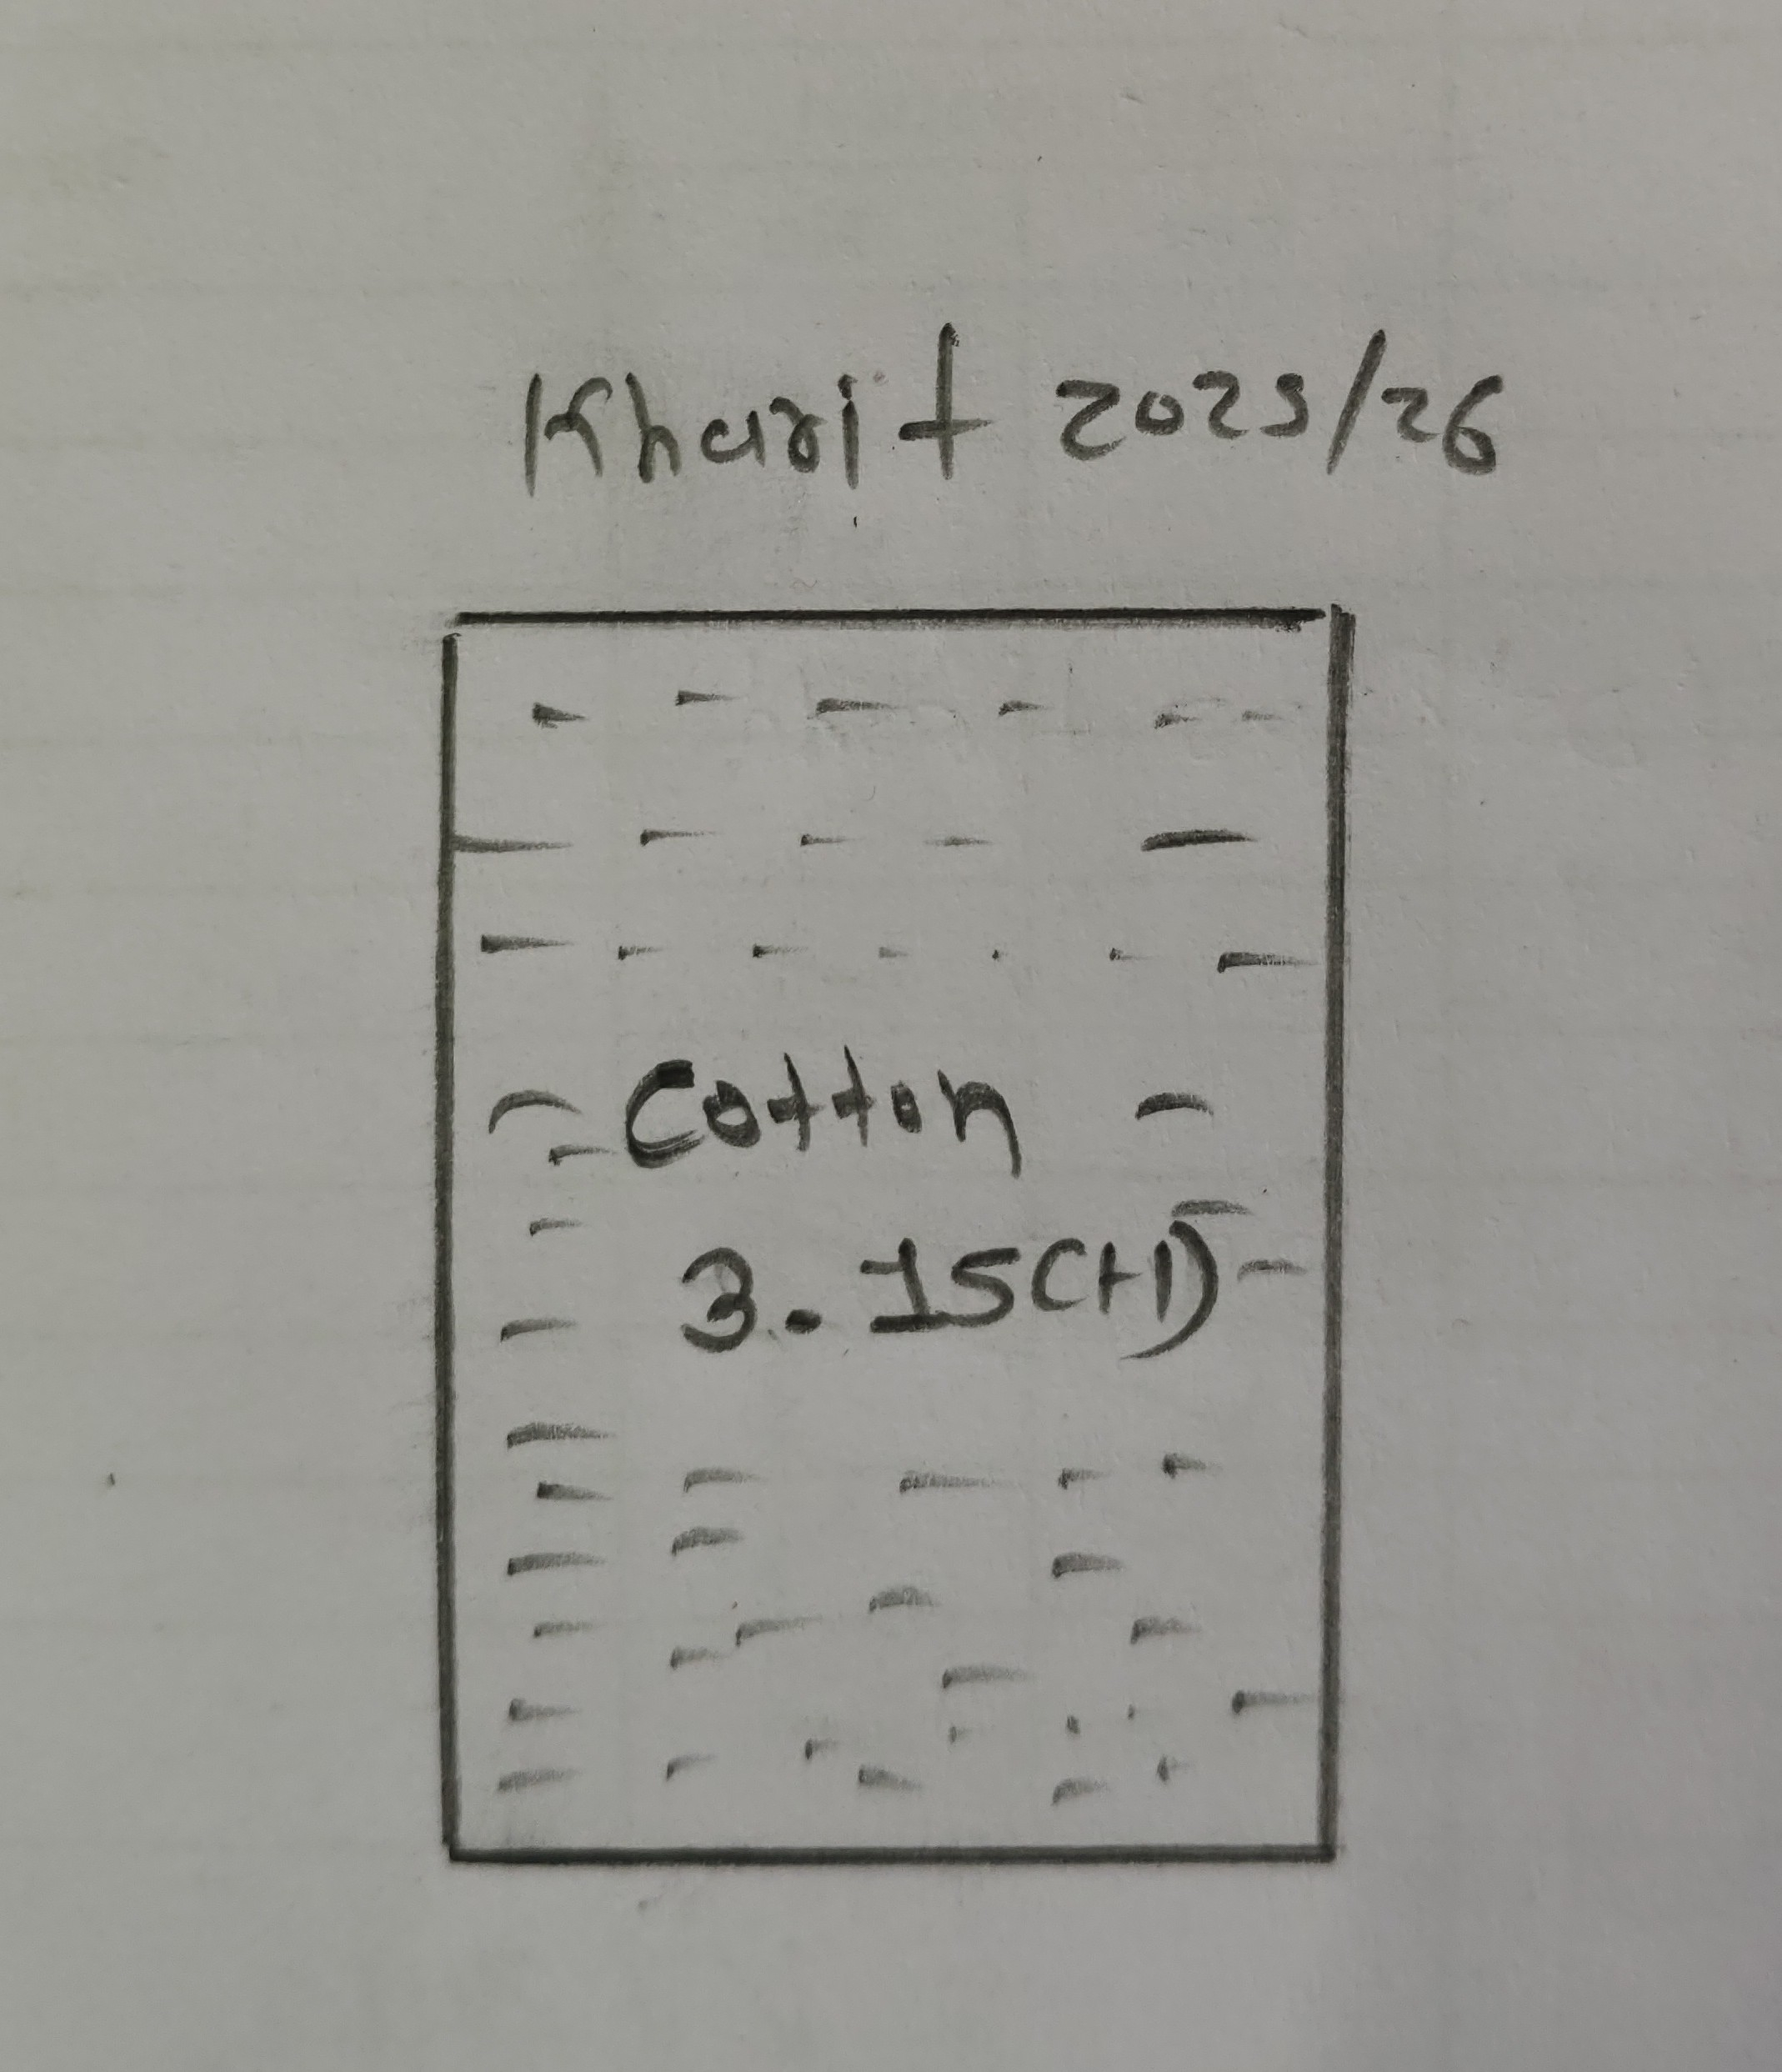 Kharif 2025/26
Cotton
3.15(H)